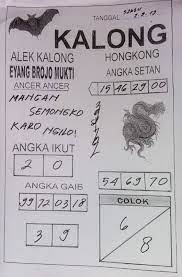 TANGGAL
KALONG
ALEK KALONG
HONGKONG
EYANG BROJO MUKTI
ANGKA SETAN
ANCER ANCER
15 46 29 00
MANGAN
SEMONGKO
KARO NGILO!
ANGKA IKUT
2 0
54 69 70
ANGKA GAIB
99 72 03 18
COLOK
3 9
6
8